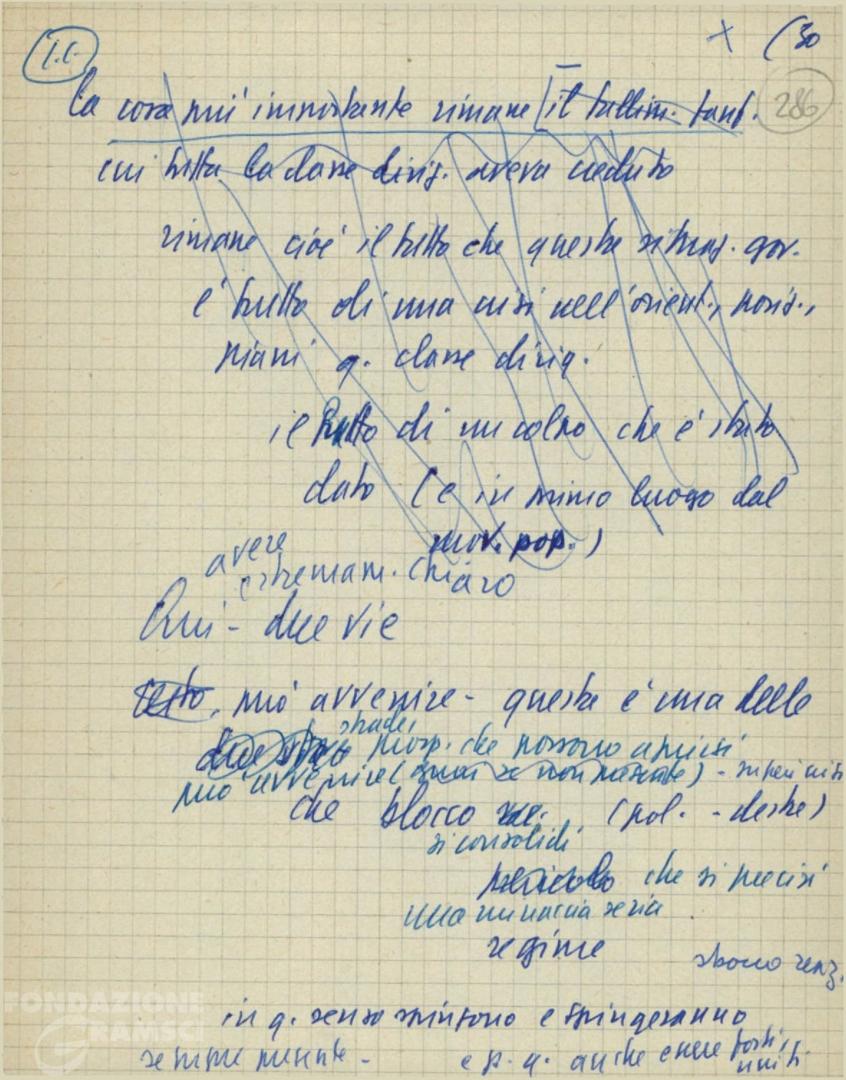 I.C.
+ (30
286
la cosa più importante rimane il fallim. tent.
cui tutta la classe dirig. aveva creduto
rimane cioè il fatto che questa situaz. gov.
è frutto di una crisi nell'orient., posiz.,
piani q. classe dirig.
il frutto di un colpo che è stato
dato (e in primo luogo dal
mov. pop.)
avere
estremam. chiaro
Qui - due vie
certo, può avvenire - questa è una delle
due strade,
prosp. che possono aprirsi
può avvenire ( se non presente) - super crisi
che blocco (pol. - destre)
si consolidi
pericolo che si precisi
una minaccia seria
regime
sbocco reaz.
in q. senso spinsero e spingeranno
sempre presente -
e p. q. anche essere forti,
uniti.
FONDAZIONE
GRAMSCI